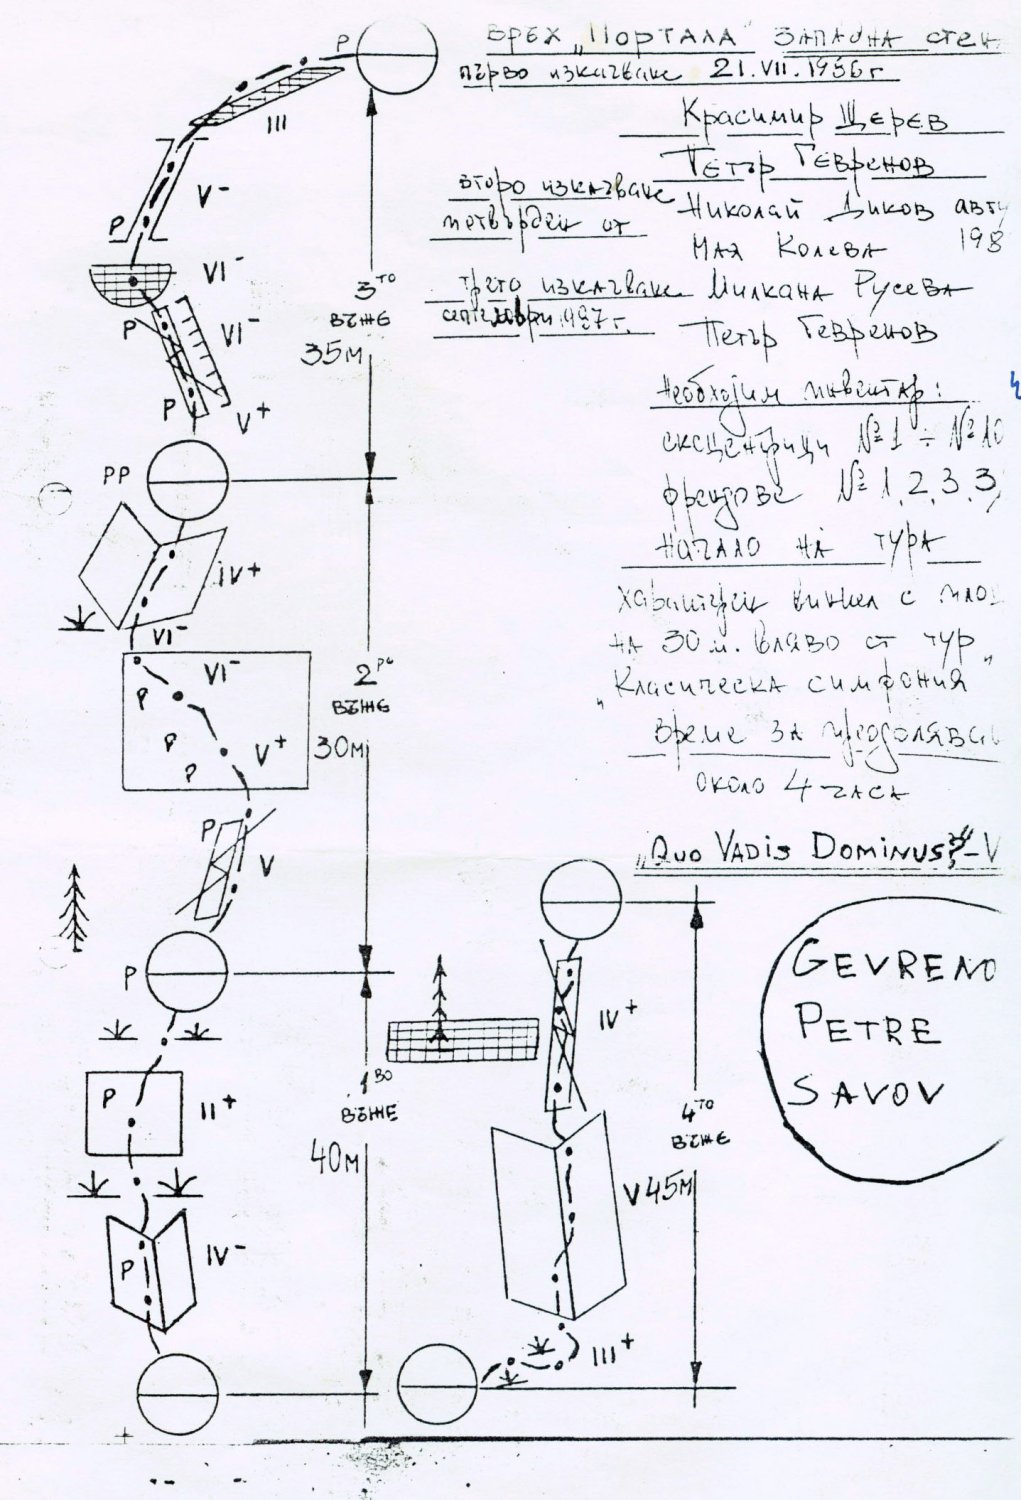 ВРЕХ „ПОРТАЛА" ЗАПАДНА стен
първо изкачване 21.VII.1986г
Красимир ЩЕРЕВ
ПЕТЪР ГЕВРЕНОВ
второ изкачване
потвърден от
Николай Диков авгу
198
МАЯ КОЛЕВА
трето изкачване Милкана РУСЕВА
септември 1987г.
Петър ГЕВРЕНОВ
Необходим инвентар:
ексцентрици №1 ÷ №10
френдове №1,2,3,3,
НАЧАЛО НА ТУРА
характерен с
НА 30м. вляво от тур
„Класическа симфония"
време за преодоляван
около 4 часа
„QUO VADIS DOMINUS?"-V
GEVRENO
PETRE
SAVOV
P
III
V-
P
VI-
P
VI-
P
V+
3ТО
ВЪЖЕ
35м
PP
IV+
VI-
VI-
P
P
P
V+
2РО
ВЪЖЕ
30М
P
V
P
P
II+
1ВО
ВЪЖЕ
40М
P
IV-
IV+
4ТО
ВЪЖЕ
V 45М
III+